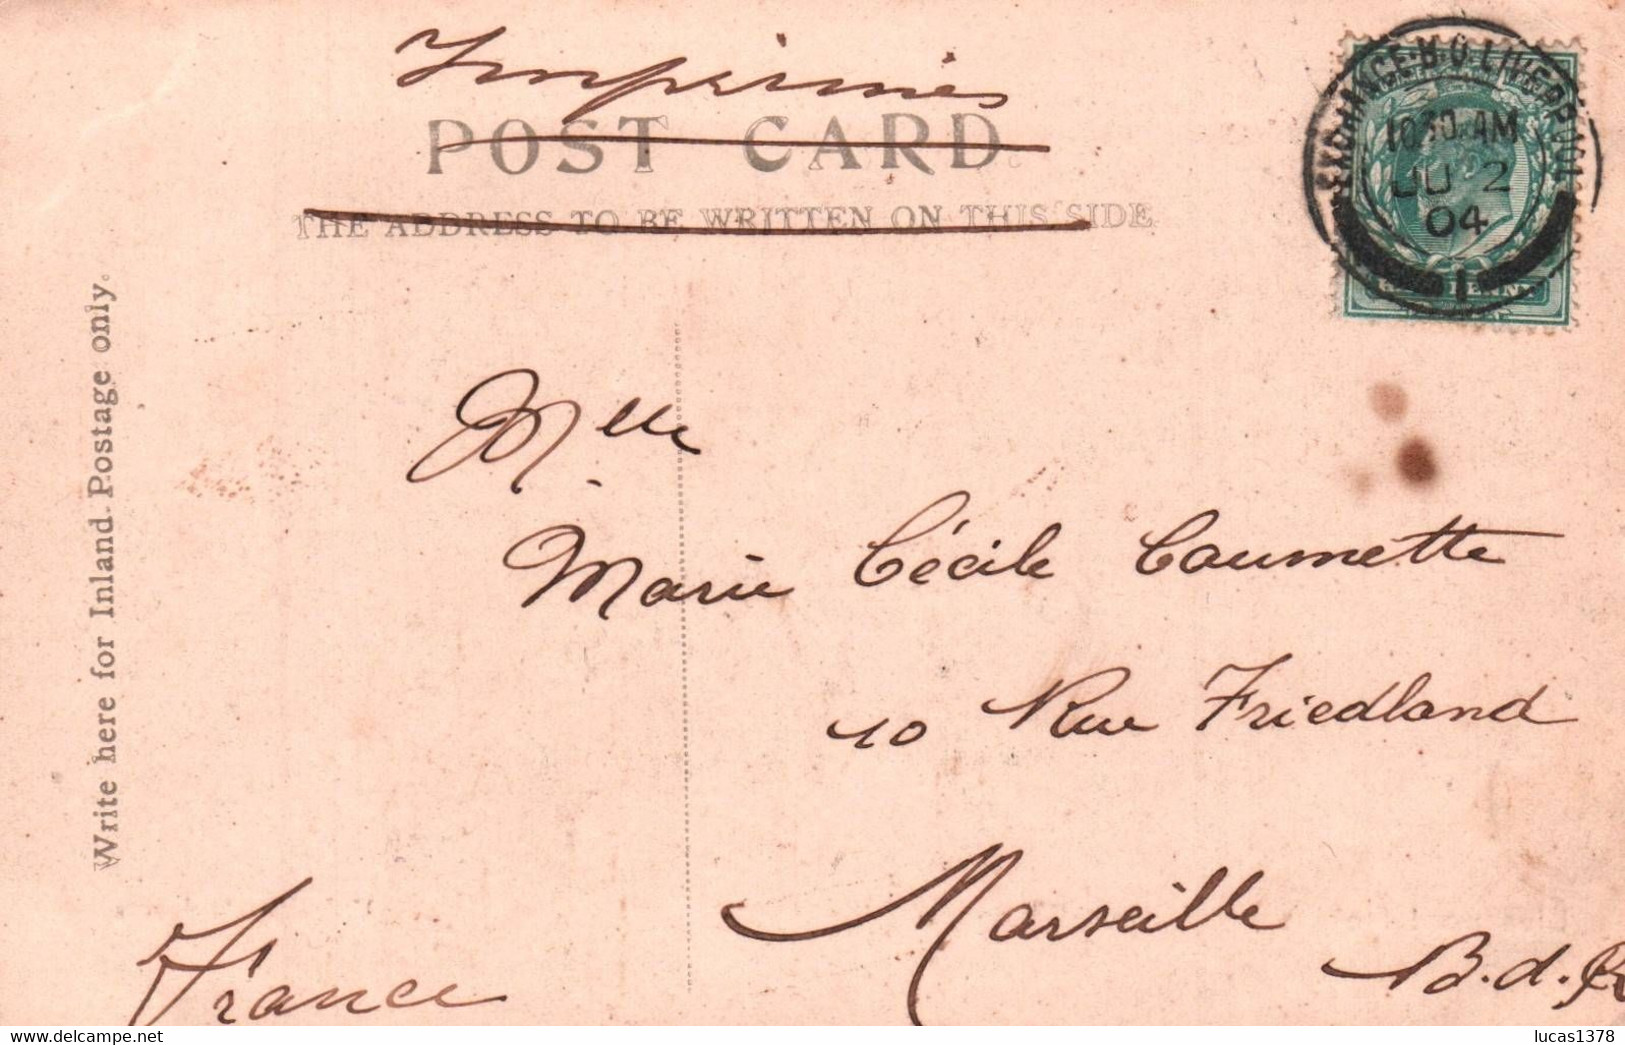 Imprimés
POST CARD
THE ADDRESS TO BE WRITTEN ON THIS SIDE
EXCHANGE.B.O.LIVERPOOL
10 30.AM
JU 2
04
1
Write here for Inland Postage only.
Mlle
Marie Cécile Caumette
10 Rue Friedland
Marseille
B.d.R
France
lucas1378